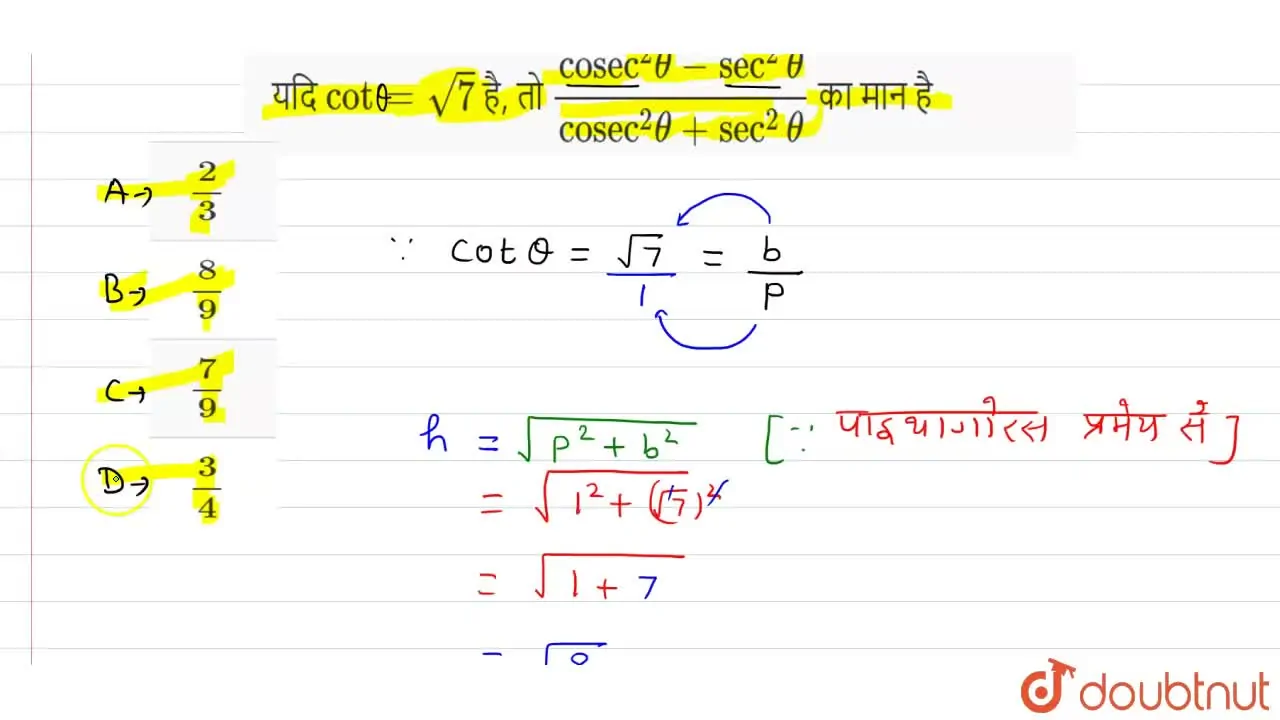 यदि cotθ= √7 है, तो (cosec²θ − sec²θ)/(cosec²θ + sec²θ) का मान है
A→ 2/3
B→ 8/9
C→ 7/9
D→ 3/4
∵ cot θ = √7/1 = b/P
h = √(P² + b²) [∵ पाइथागोरस प्रमेय से]
= √(1² + (√7)²)
= √(1 + 7)
= √8
doubtnut